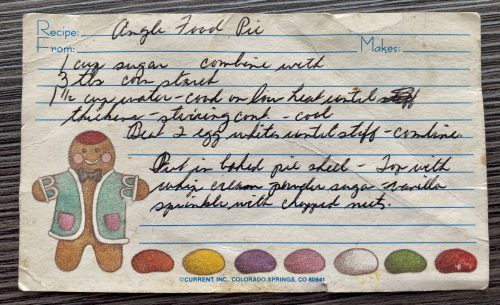 Recipe: Angle Food Pie
From: Makes:
1 cup sugar combine with
3 tbs corn starch
1 1/2 cup water - cook on low heat until
thickens - stirring const - cool
Beat 2 egg whites until stiff - combine.
Put in baked pie shell - Top with
whip cream powder sugar - vanilla
sprinkle with chopped nuts.
©CURRENT, INC., COLORADO SPRINGS, CO 80941